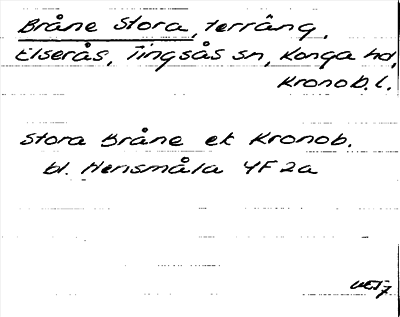 Bråne Stora, terräng,
Elserås, Tingsås sn, Konga hd,
Kronob. l.
Stora Bråne ek Kronob.
bl. Hensmåla 4F 2a